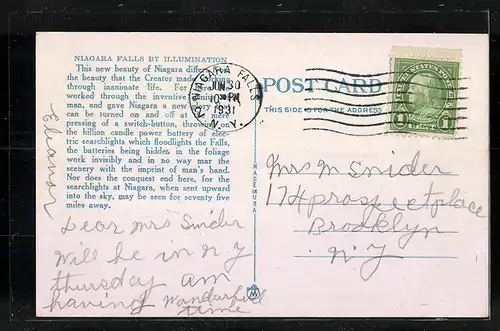 NIAGARA FALLS BY ILLUMINATION
This new beauty of Niagara differs
the beauty that the Creator made
through inanimate life. For
worked through the inventive
man, and gave Niagara a new
can be turned on and off at mere
pressing of a switch-button, throwing on
the billion candle power battery of elec-
tric searchlights which floodlights the Falls,
the batteries being hidden in the foliage
work invisibly and in no way mar the
scenery with the imprint of man's hand.
Nor does the conquest end here, for the
searchlights at Niagara, when sent upward
into the sky, may be seen for seventy five
miles away.
Eleanor
Dear Mrs Snider
Will be in N.Y
thursday am
having Wonderfull
time
NIAGARA FALLS
JUN 30
10 PM
1931
N.Y.
POST CARD
THIS SIDE IS FOR THE ADDRESS
MADE IN U.S.A.
1 1
Mrs M Snider
174 prospect place
Brooklyn
N.Y